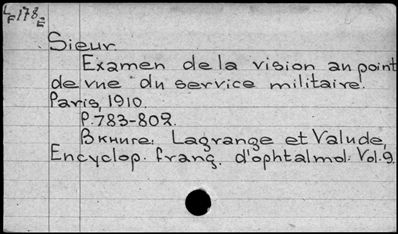 L/F178/E
Sieur.
Examen de la vision au point
de vue du service militaire.
Paris, 1910.
P. 783-802.
В книге: Lagrange et Valude,
Encyclop. franç. d'ophtalmol. Vol. 9.